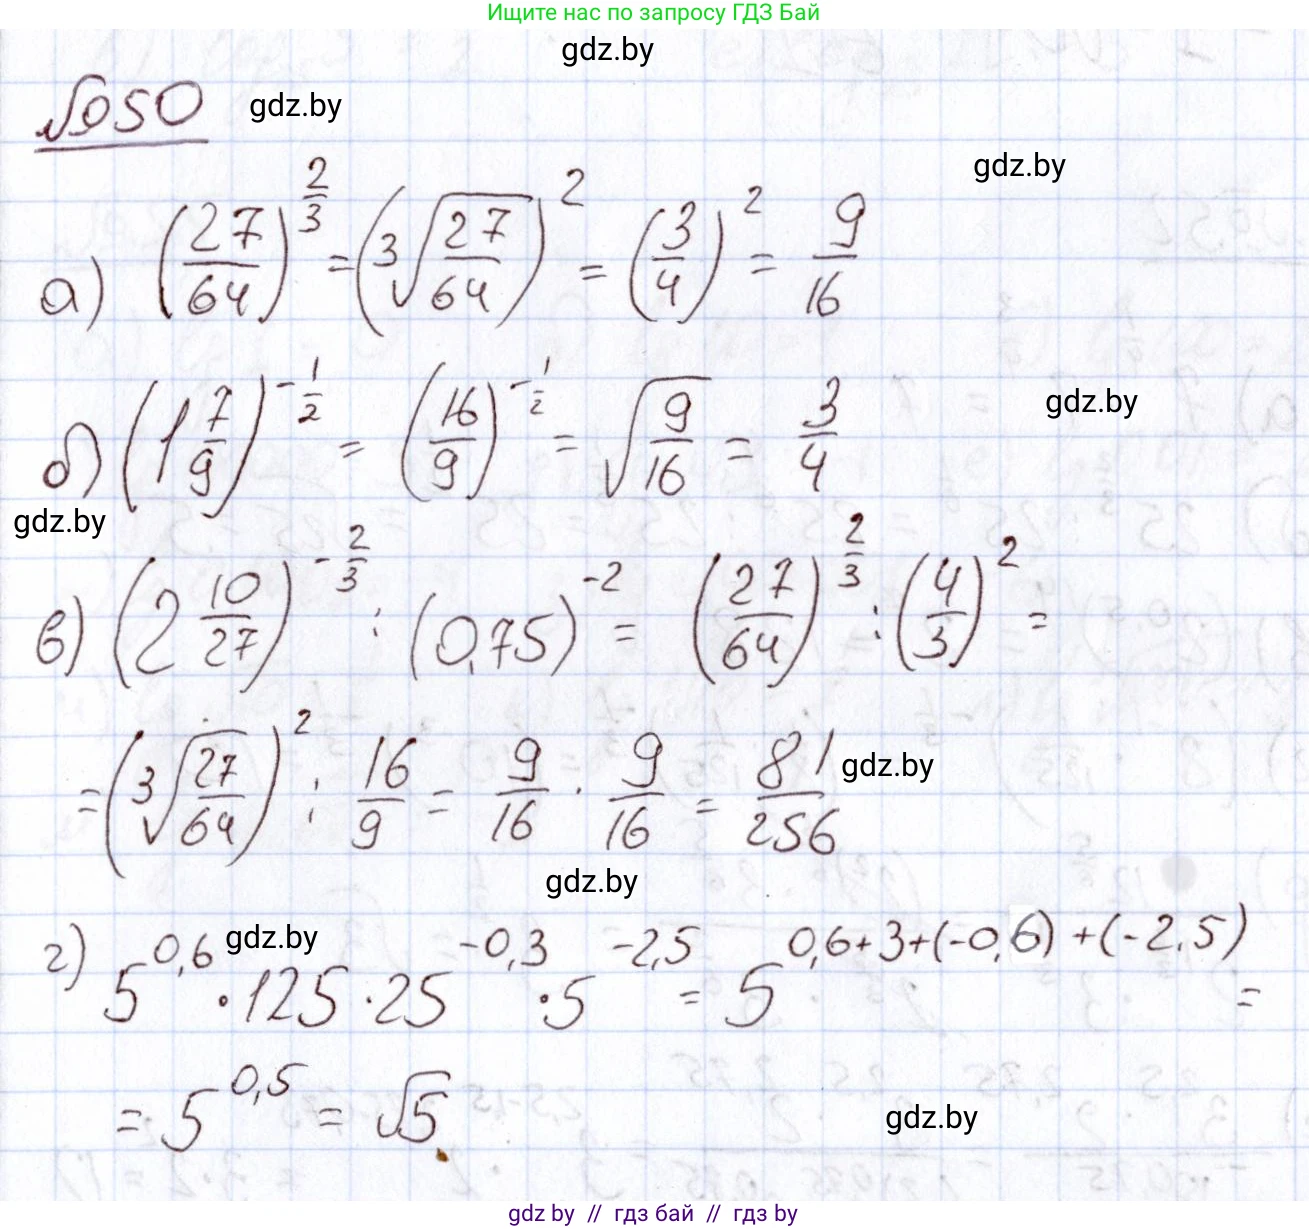 Ищите нас по запросу ГДЗ Бай
gdz.by
№950 gdz.by
gdz.by
а) (27/64)^(2/3) = (∛(27/64))^2 = (3/4)^2 = 9/16
б) (1 7/9)^(-1/2) = (16/9)^(-1/2) = √(9/16) = 3/4
gdz.by
gdz.by
в) (2 10/27)^(-2/3) : (0,75)^(-2) = (27/64)^(2/3) : (4/3)^2 =
= (∛(27/64))^2 : 16/9 = 9/16 · 9/16 = 81/256
gdz.by
gdz.by
gdz.by
г) 5^(0,6) · 125 · 25^(-0,3) · 5^(-2,5) = 5^(0,6+3+(-0,6)+(-2,5)) =
= 5^(0,5) = √5
gdz.by
gdz by // гдз бай // гдз by